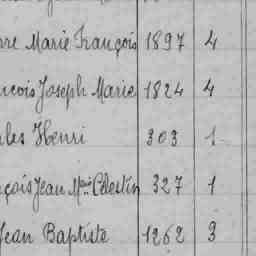 rre Marie François 1897 4
ncois Joseph Marie 1824 4
rles Henri 303 1
nçois Jean Mie Célestin 327 1
Jean Baptiste 1262 3